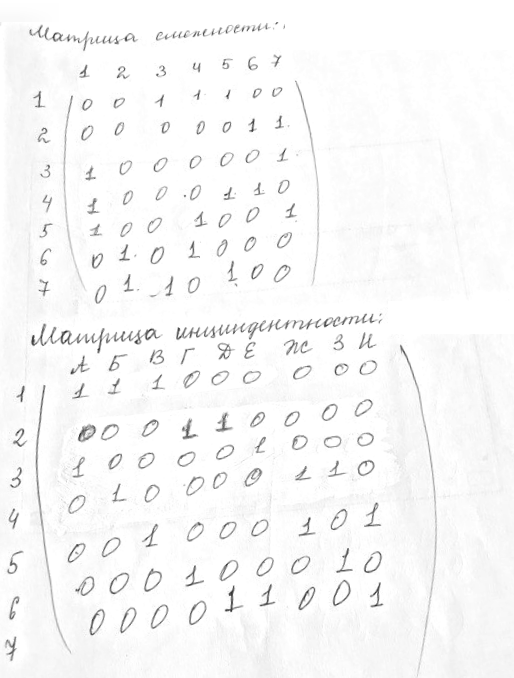 Матрица смежности:
1 2 3 4 5 6 7
1 0 0 1 1 1 0 0
2 0 0 0 0 0 1 1
3 1 0 0 0 0 0 1
4 1 0 0 0 1 1 0
5 1 0 0 1 0 0 1
6 0 1 0 1 0 0 0
7 0 1 1 0 1 0 0
Матрица инциндентности:
А Б В Г Д Е Ж З И
1 1 1 1 0 0 0 0 0 0
2 0 0 0 1 1 0 0 0 0
3 1 0 0 0 0 1 0 0 0
4 0 1 0 0 0 0 1 1 0
5 0 0 1 0 0 0 1 0 1
6 0 0 0 1 0 0 0 1 0
7 0 0 0 0 1 1 0 0 1